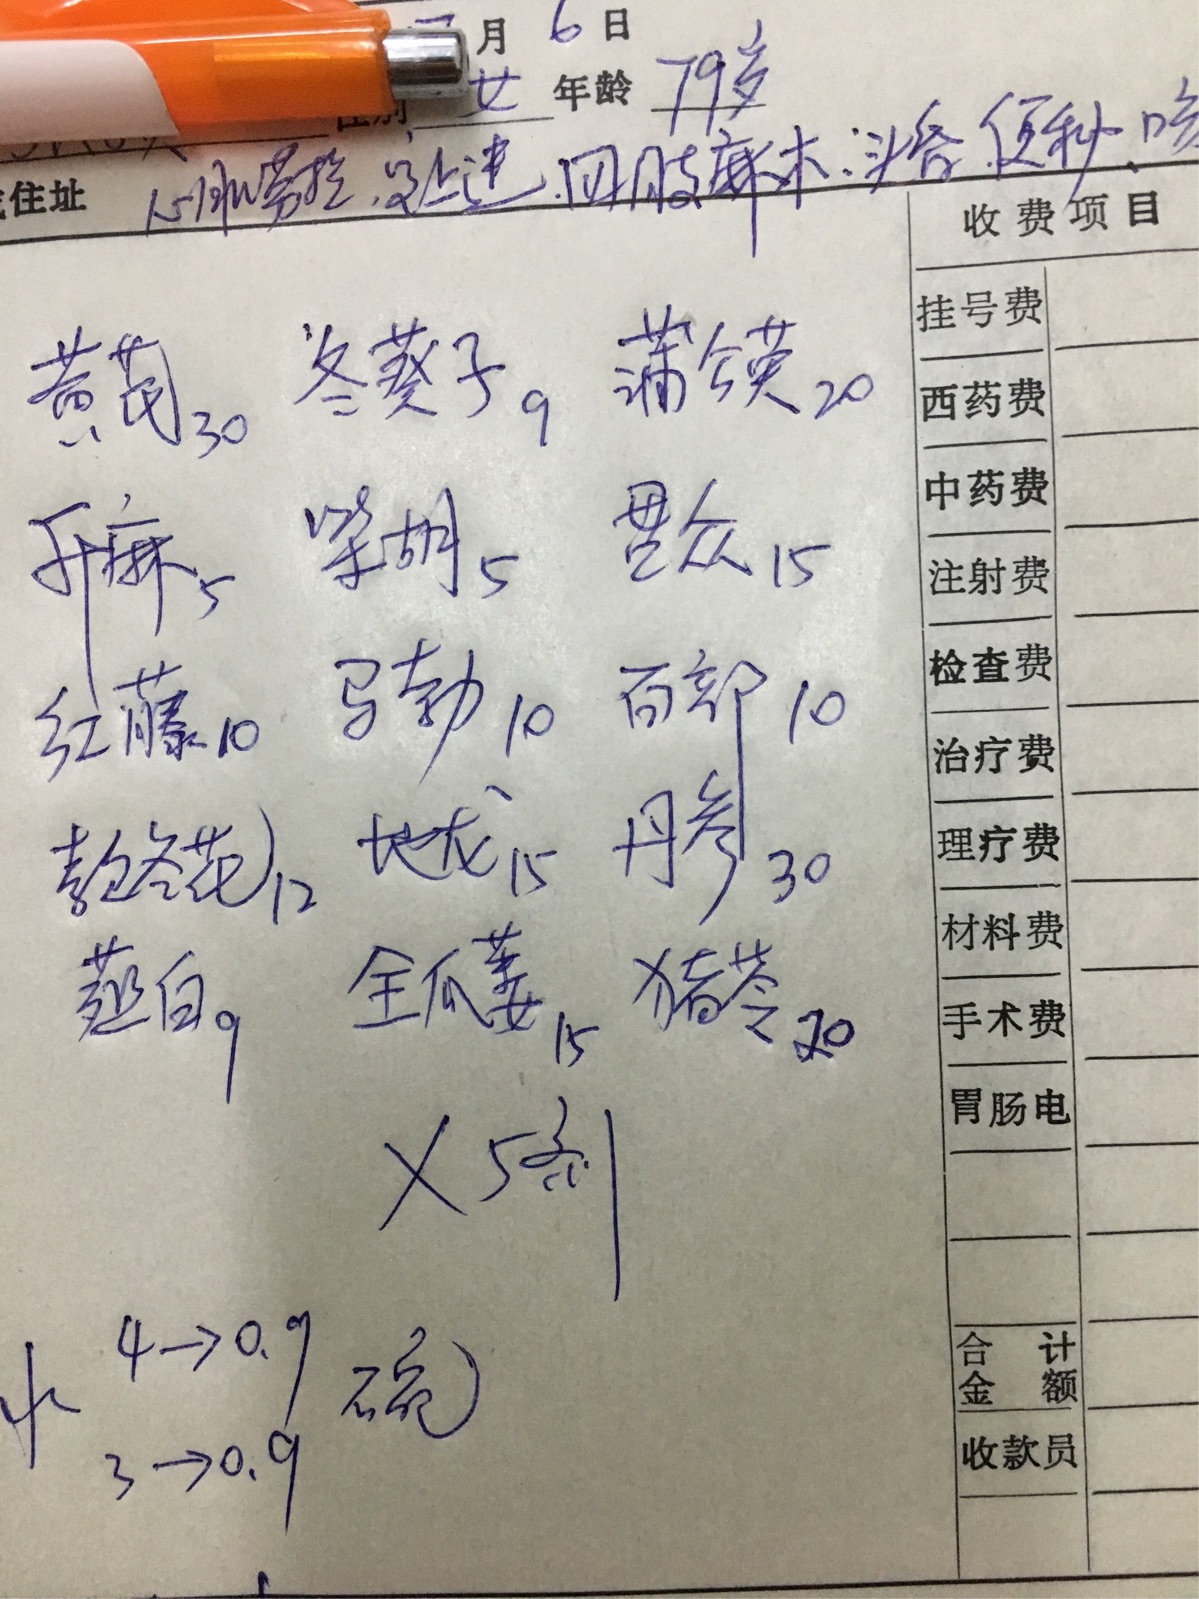 月 6 日
女 年龄 79岁
住址 心肌劳损 四肢麻木 头昏 便秘 咳
收费项目
挂号费
西药费
中药费
注射费
检查费
治疗费
理疗费
材料费
手术费
胃肠电
合计金额
收款员
黄芪30 冬葵子9 蒲公英20
升麻5 柴胡5 贯众15
红藤10 马勃10 百部10
冬花12 地龙15 丹参30
薤白9 全瓜蒌15 猪苓20
X5剂
4→0.9
3→0.9